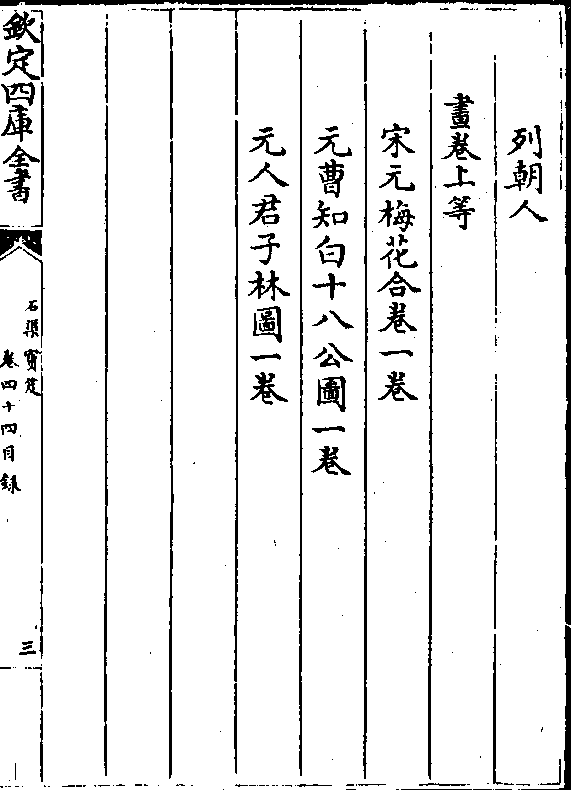 列朝人
畫卷上等
宋元梅花合卷一卷
元曹知白十八公圖一卷
元人君子林圖一卷
欽定四庫全書
石渠寶笈
卷四十四目錄
三